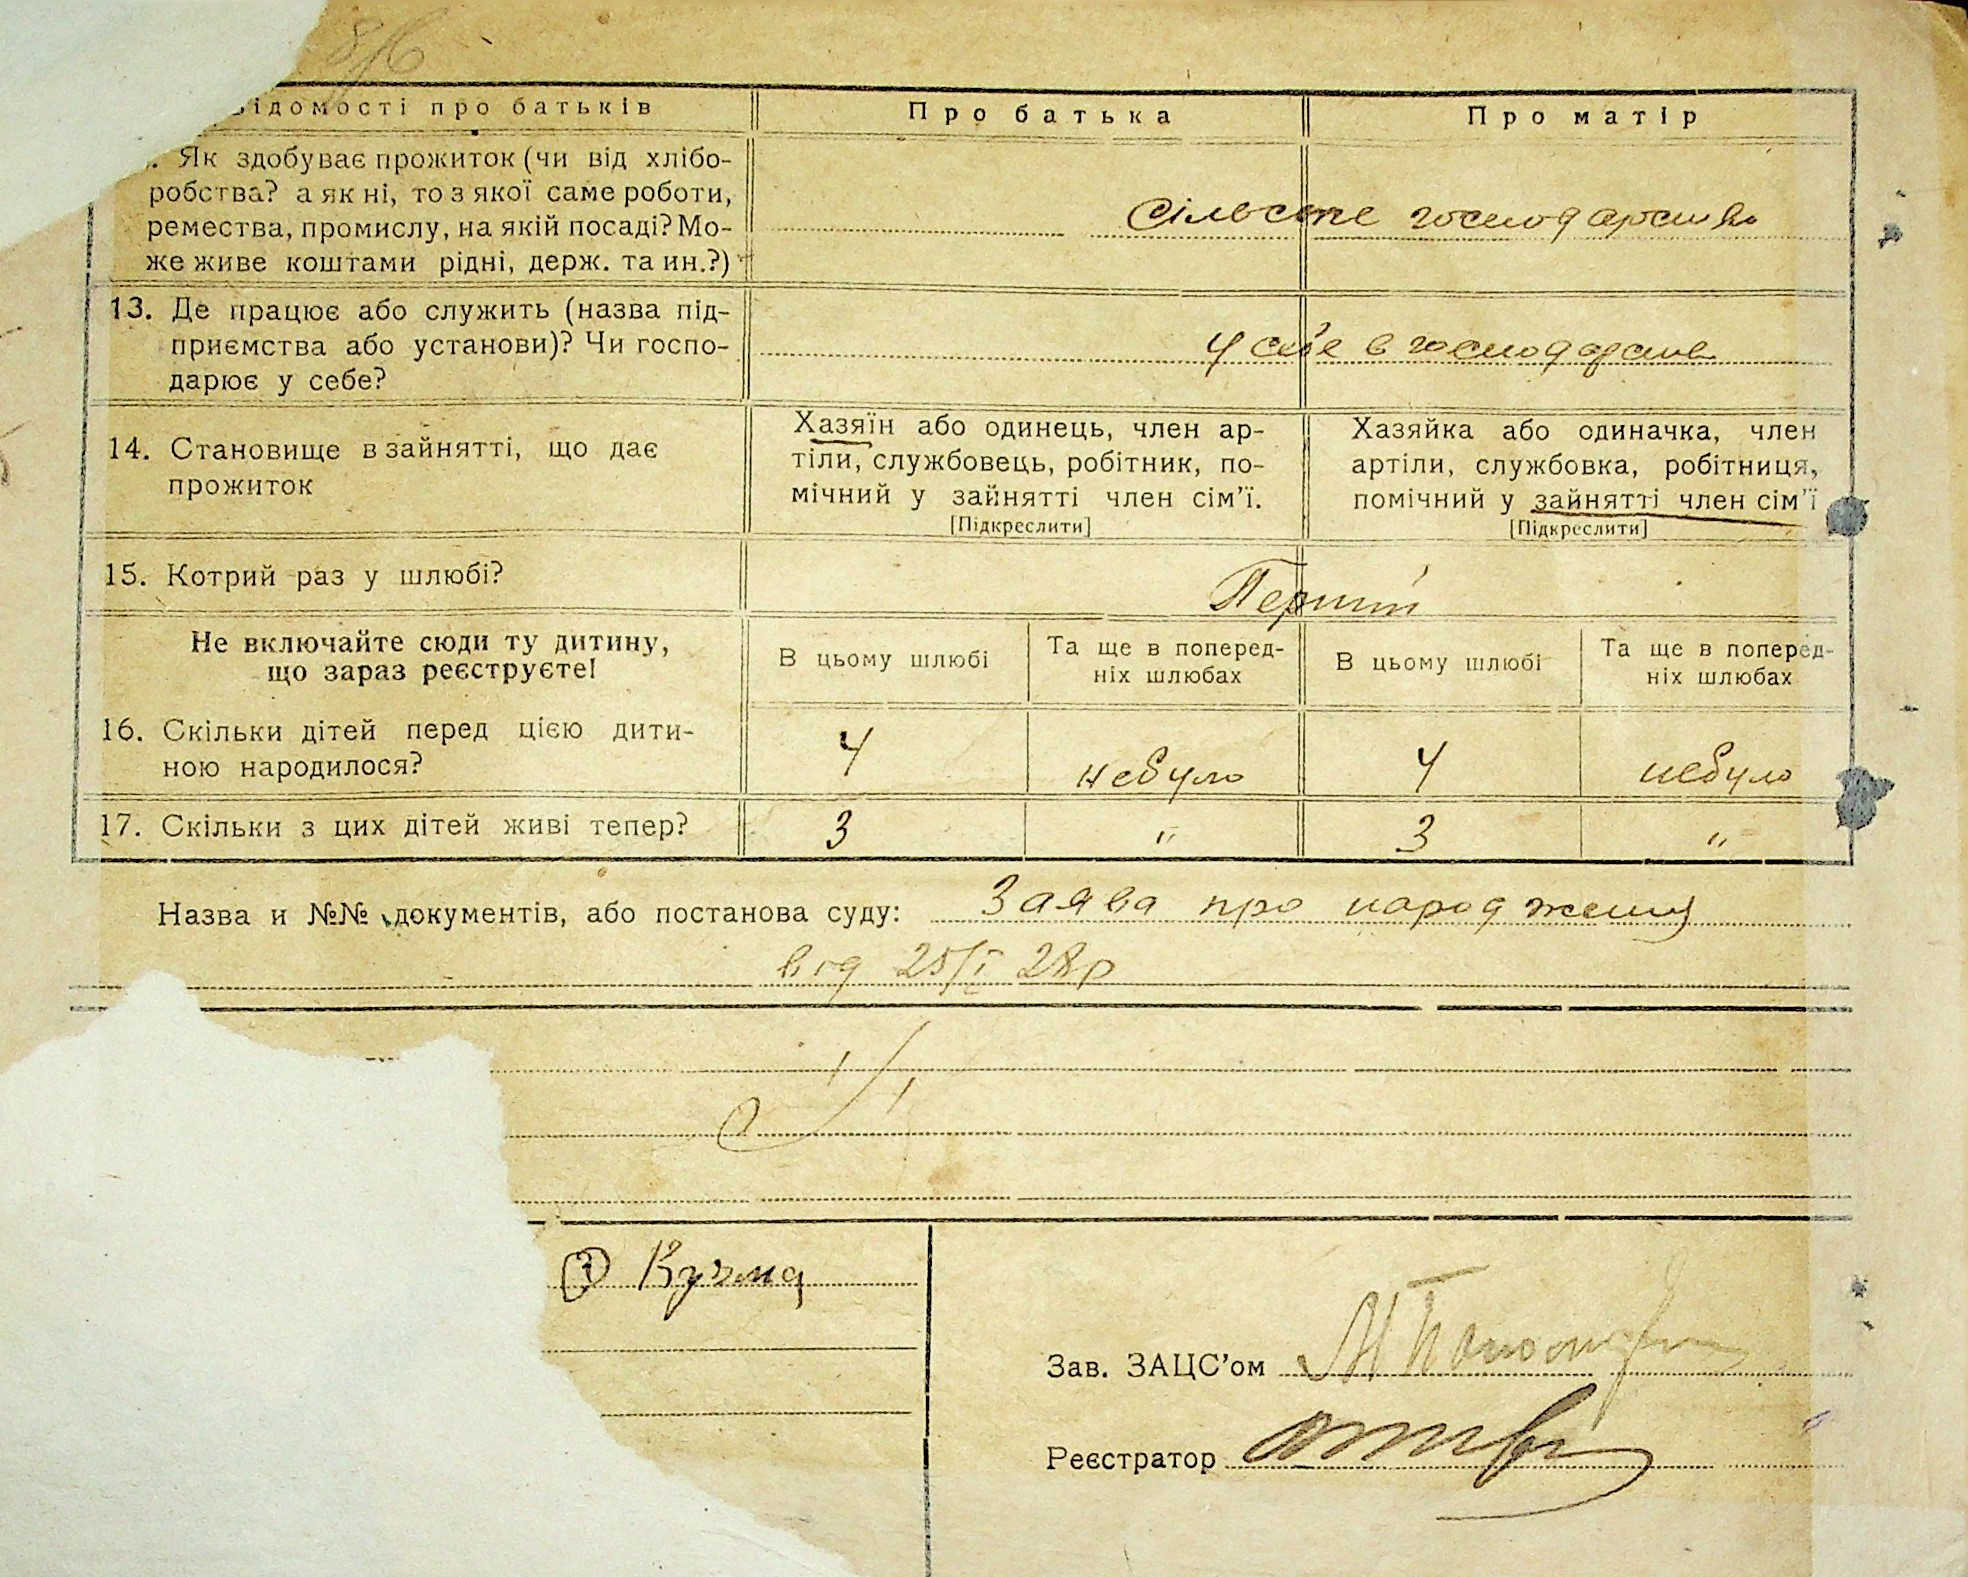 Відомості про батьків
Про батька
Про матір
Як здобуває прожиток (чи від хлібо-
робства? а як ні, то з якої саме роботи,
ремества, промислу, на якій посаді? Мо-
же живе коштами рідні, держ. та ин.?)
Сільське господарство
13. Де працює або служить (назва під-
приємства або установи)? Чи госпо-
дарює у себе?
У себе в господарстве
14. Становище в зайнятті, що дає
прожиток
Хазяїн або одинець, член ар-
тіли, службовець, робітник, по-
мічний у зайнятті член сім'ї.
[Підкреслити]
Хазяйка або одиначка, член
артіли, службовка, робітниця,
помічний у зайнятті член сім'ї
[Підкреслити]
15. Котрий раз у шлюбі?
Перший
Не включайте сюди ту дитину,
що зараз реєструєте!
В цьому шлюбі
Та ще в поперед-
ніх шлюбах
В цьому шлюбі
Та ще в поперед-
ніх шлюбах
16. Скільки дітей перед цією дити-
ною народилося?
4
небуло
4
небуло
17. Скільки з цих дітей живі тепер?
3
"
3
"
Назва и №№ документів, або постанова суду: Заява про народження
від 25/I 28р
Кузма
Зав. ЗАЦС'ом
Реєстратор